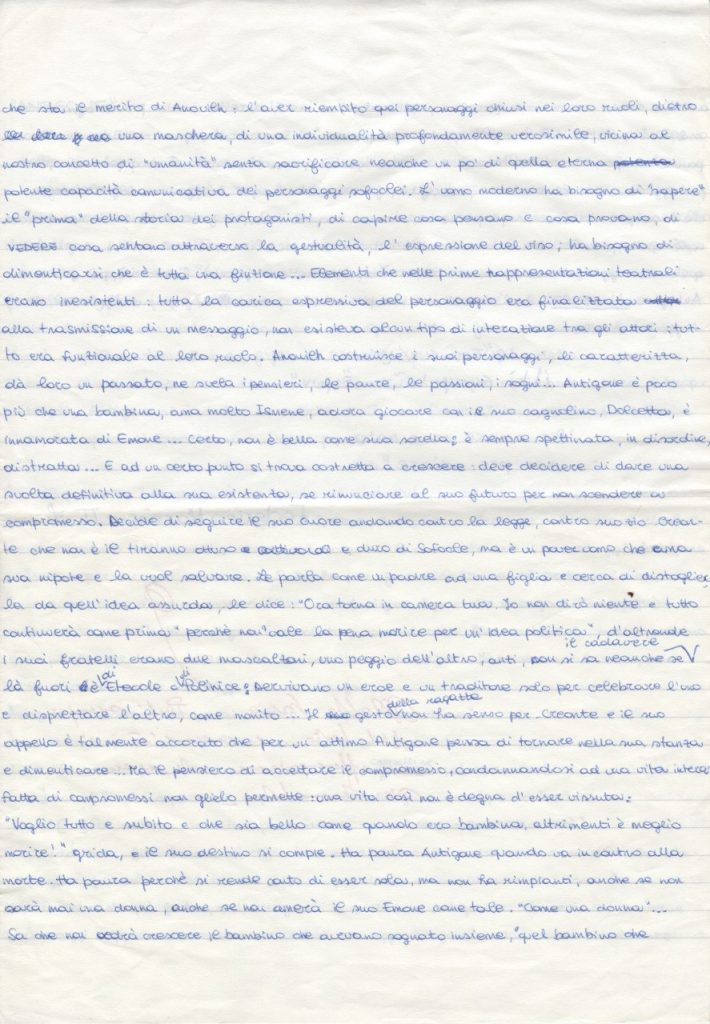 che sta il merito di Anouilh : l'aver riempito quei personaggi chiusi nei loro ruoli, dietro
una maschera, di una individualità profondamente verosimile, vicina al
nostro concetto di "umanità" senza sacrificare neanche un po' di quella eterna potenta
potente capacità comunicativa dei personaggi sofoclei. L' uomo moderno ha bisogno di "sapere"
il "prima" della storia dei protagonisti, di capire cosa pensano e cosa provano, di
VEDERE cosa sentono attraverso la gestualità, l' espressione del viso ; ha bisogno di
dimenticarsi che è tutta una finzione ... Elementi che nelle prime rappresentazioni teatrali
erano inesistenti : tutta la carica espressiva del personaggio era finalizzata
alla trasmissione di un messaggio, non esisteva alcun tipo di interazione tra gli attori : tut-
to era funzionale al loro ruolo. Anouilh costruisce i suoi personaggi, li caratterizza,
dà loro un passato, ne svela i pensieri, le paure, le passioni, i sogni ... Antigone è poco
più che una bambina, ama molto Ismene, adora giocare con il suo cagnolino, Dolcetta, è
innamorata di Emone ... Certo, non è bella come sua sorella ; è sempre spettinata, in disordine,
distratta ... E ad un certo punto si trova costretta a crescere : deve decidere di dare una
svolta definitiva alla sua esistenza, se rinunciare al suo futuro per non scendere a
compromesso. Decide di seguire il suo cuore andando contro la legge, contro suo zio Creon-
te che non è il tiranno ottuso e duro di Sofocle, ma è un pover uomo che ama
sua nipote e la vuol salvare. Le parla come un padre ad una figlia e cerca di distoglier
la da quell'idea assurda, le dice : "Ora torna in camera tua. Io non dirò niente e tutto
continuerà come prima" perchè non "vale la pena morire per un'idea politica", d'altronde
i suoi fratelli erano due mascalzoni, uno peggio dell'altro, anzi, non si sa neanche se il cadavere
là fuori è di Eteocle o di Polinice ; servivano un eroe e un traditore solo per celebrare l'uno
e disprezzare l'altro, come monito ... Il gesto della ragazza non ha senso per Creonte e il suo
appello è talmente accorato che per un attimo Antigone pensa di tornare nella sua stanza
e dimenticare ... Ma il pensiero di accettare il compromesso, condannandosi ad una vita intera
fatta di compromessi non glielo permette : una vita così non è degna d' esser vissuta :
"Voglio tutto e subito e che sia bello come quando ero bambina, altrimenti è meglio
morire !" grida, e il suo destino si compie. Ha paura Antigone quando va incontro alla
morte. Ha paura perchè si rende conto di esser sola, ma non ha rimpianti, anche se non
sarà mai una donna, anche se non amerà il suo Emone come tale. "Come una donna" ...
Sa che non vedrà crescere il bambino che avevano sognato insieme, "quel bambino che